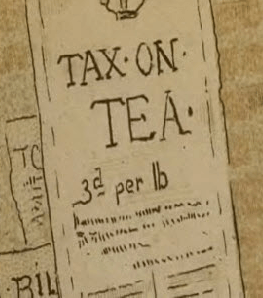 TAX·ON·
TEA·
3d per lb
TO
BIL